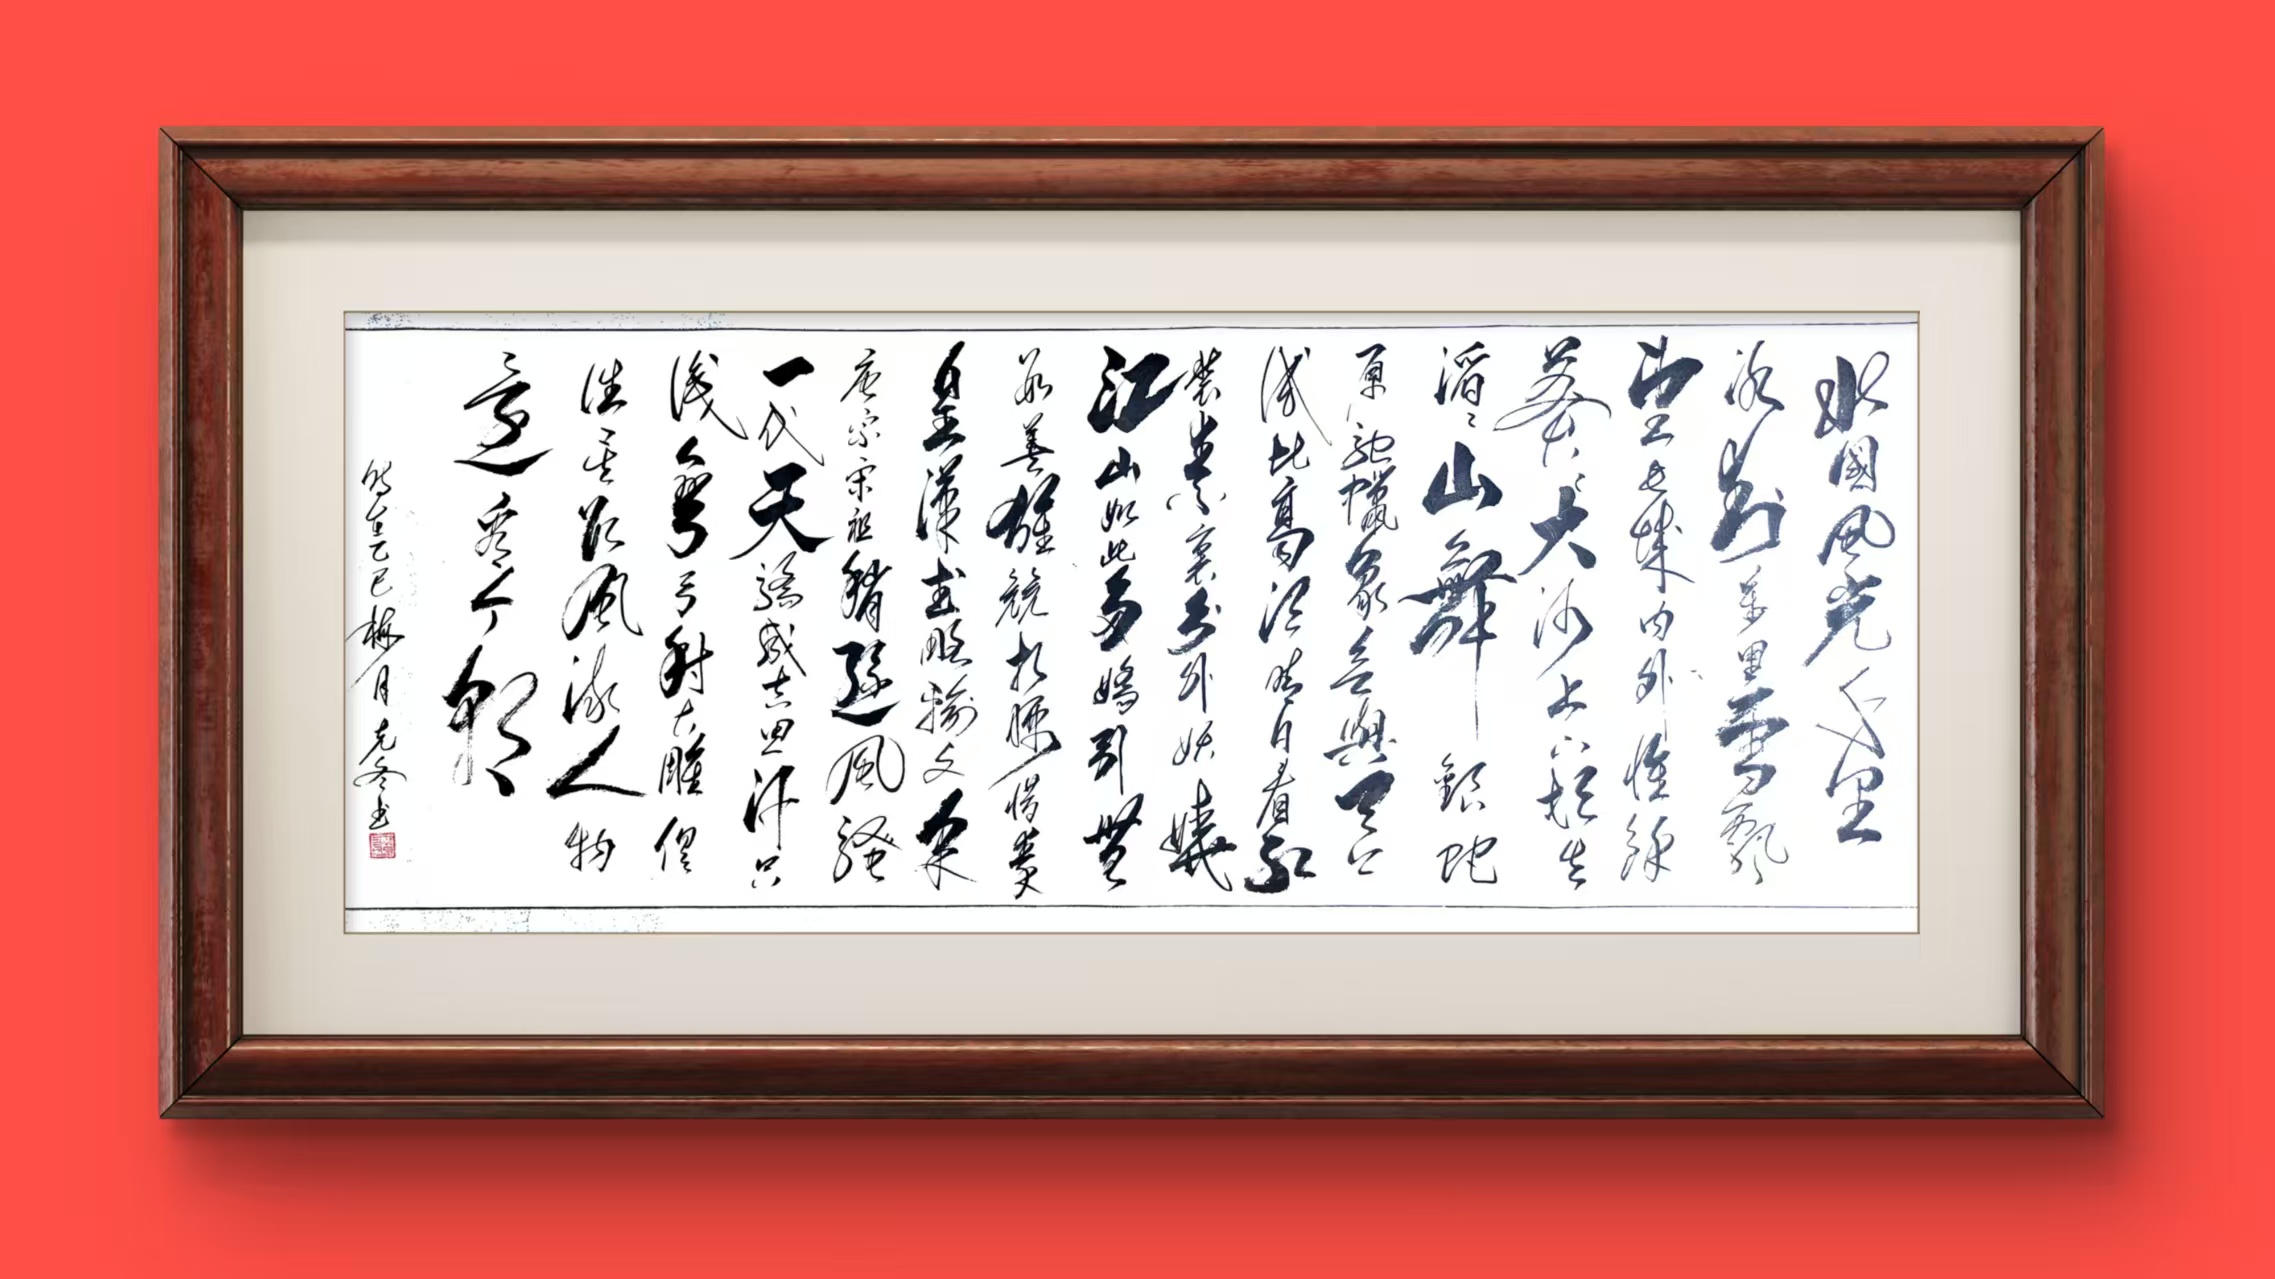 北國風光千里
冰封萬里雪飄
望長城内外惟餘
莽々大河上下頓失
滔々山舞銀蛇
原馳蠟象欲與天公
試比高須晴日看紅
裝素裹分外妖嬈
江山如此多嬌引無
數英雄競折腰惜秦
皇漢武略輸文采
唐宗宋祖稍遜風騷
一代天驕成吉思汗只
識彎弓射大雕俱
往矣數風流人物
還看今朝
時在乙巳梅月克冬书